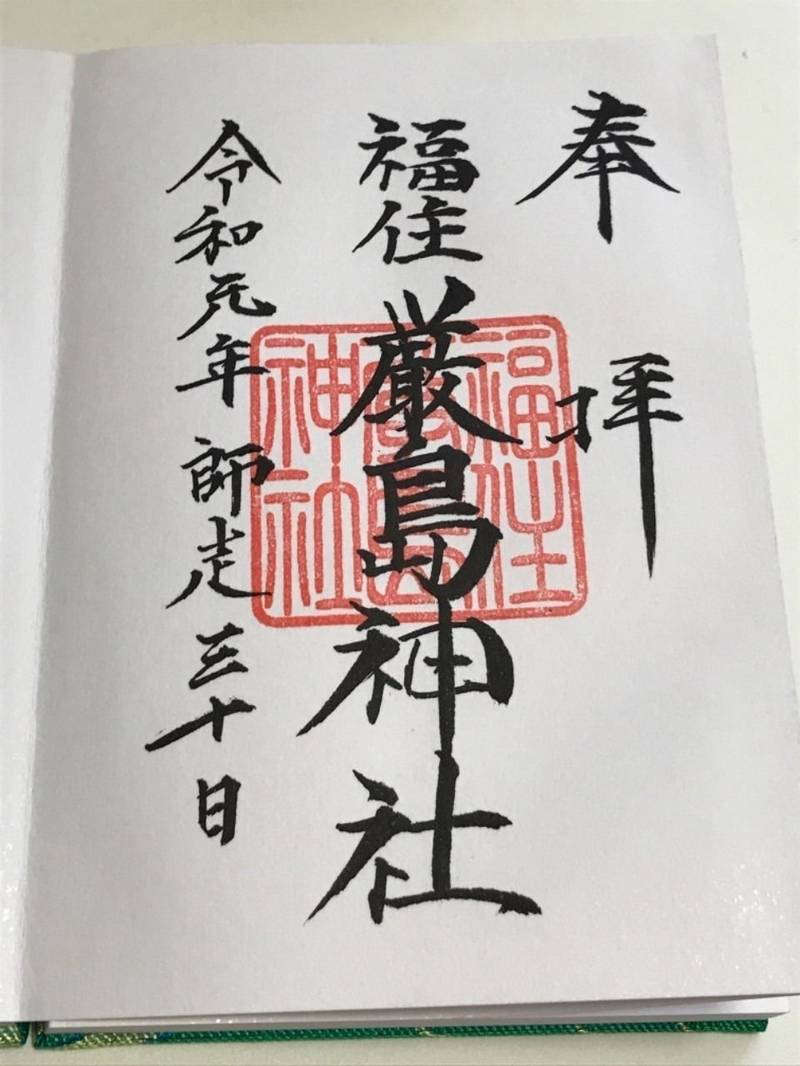 奉拝
福住厳島神社
令和元年師走三十日
福住
厳島
神社